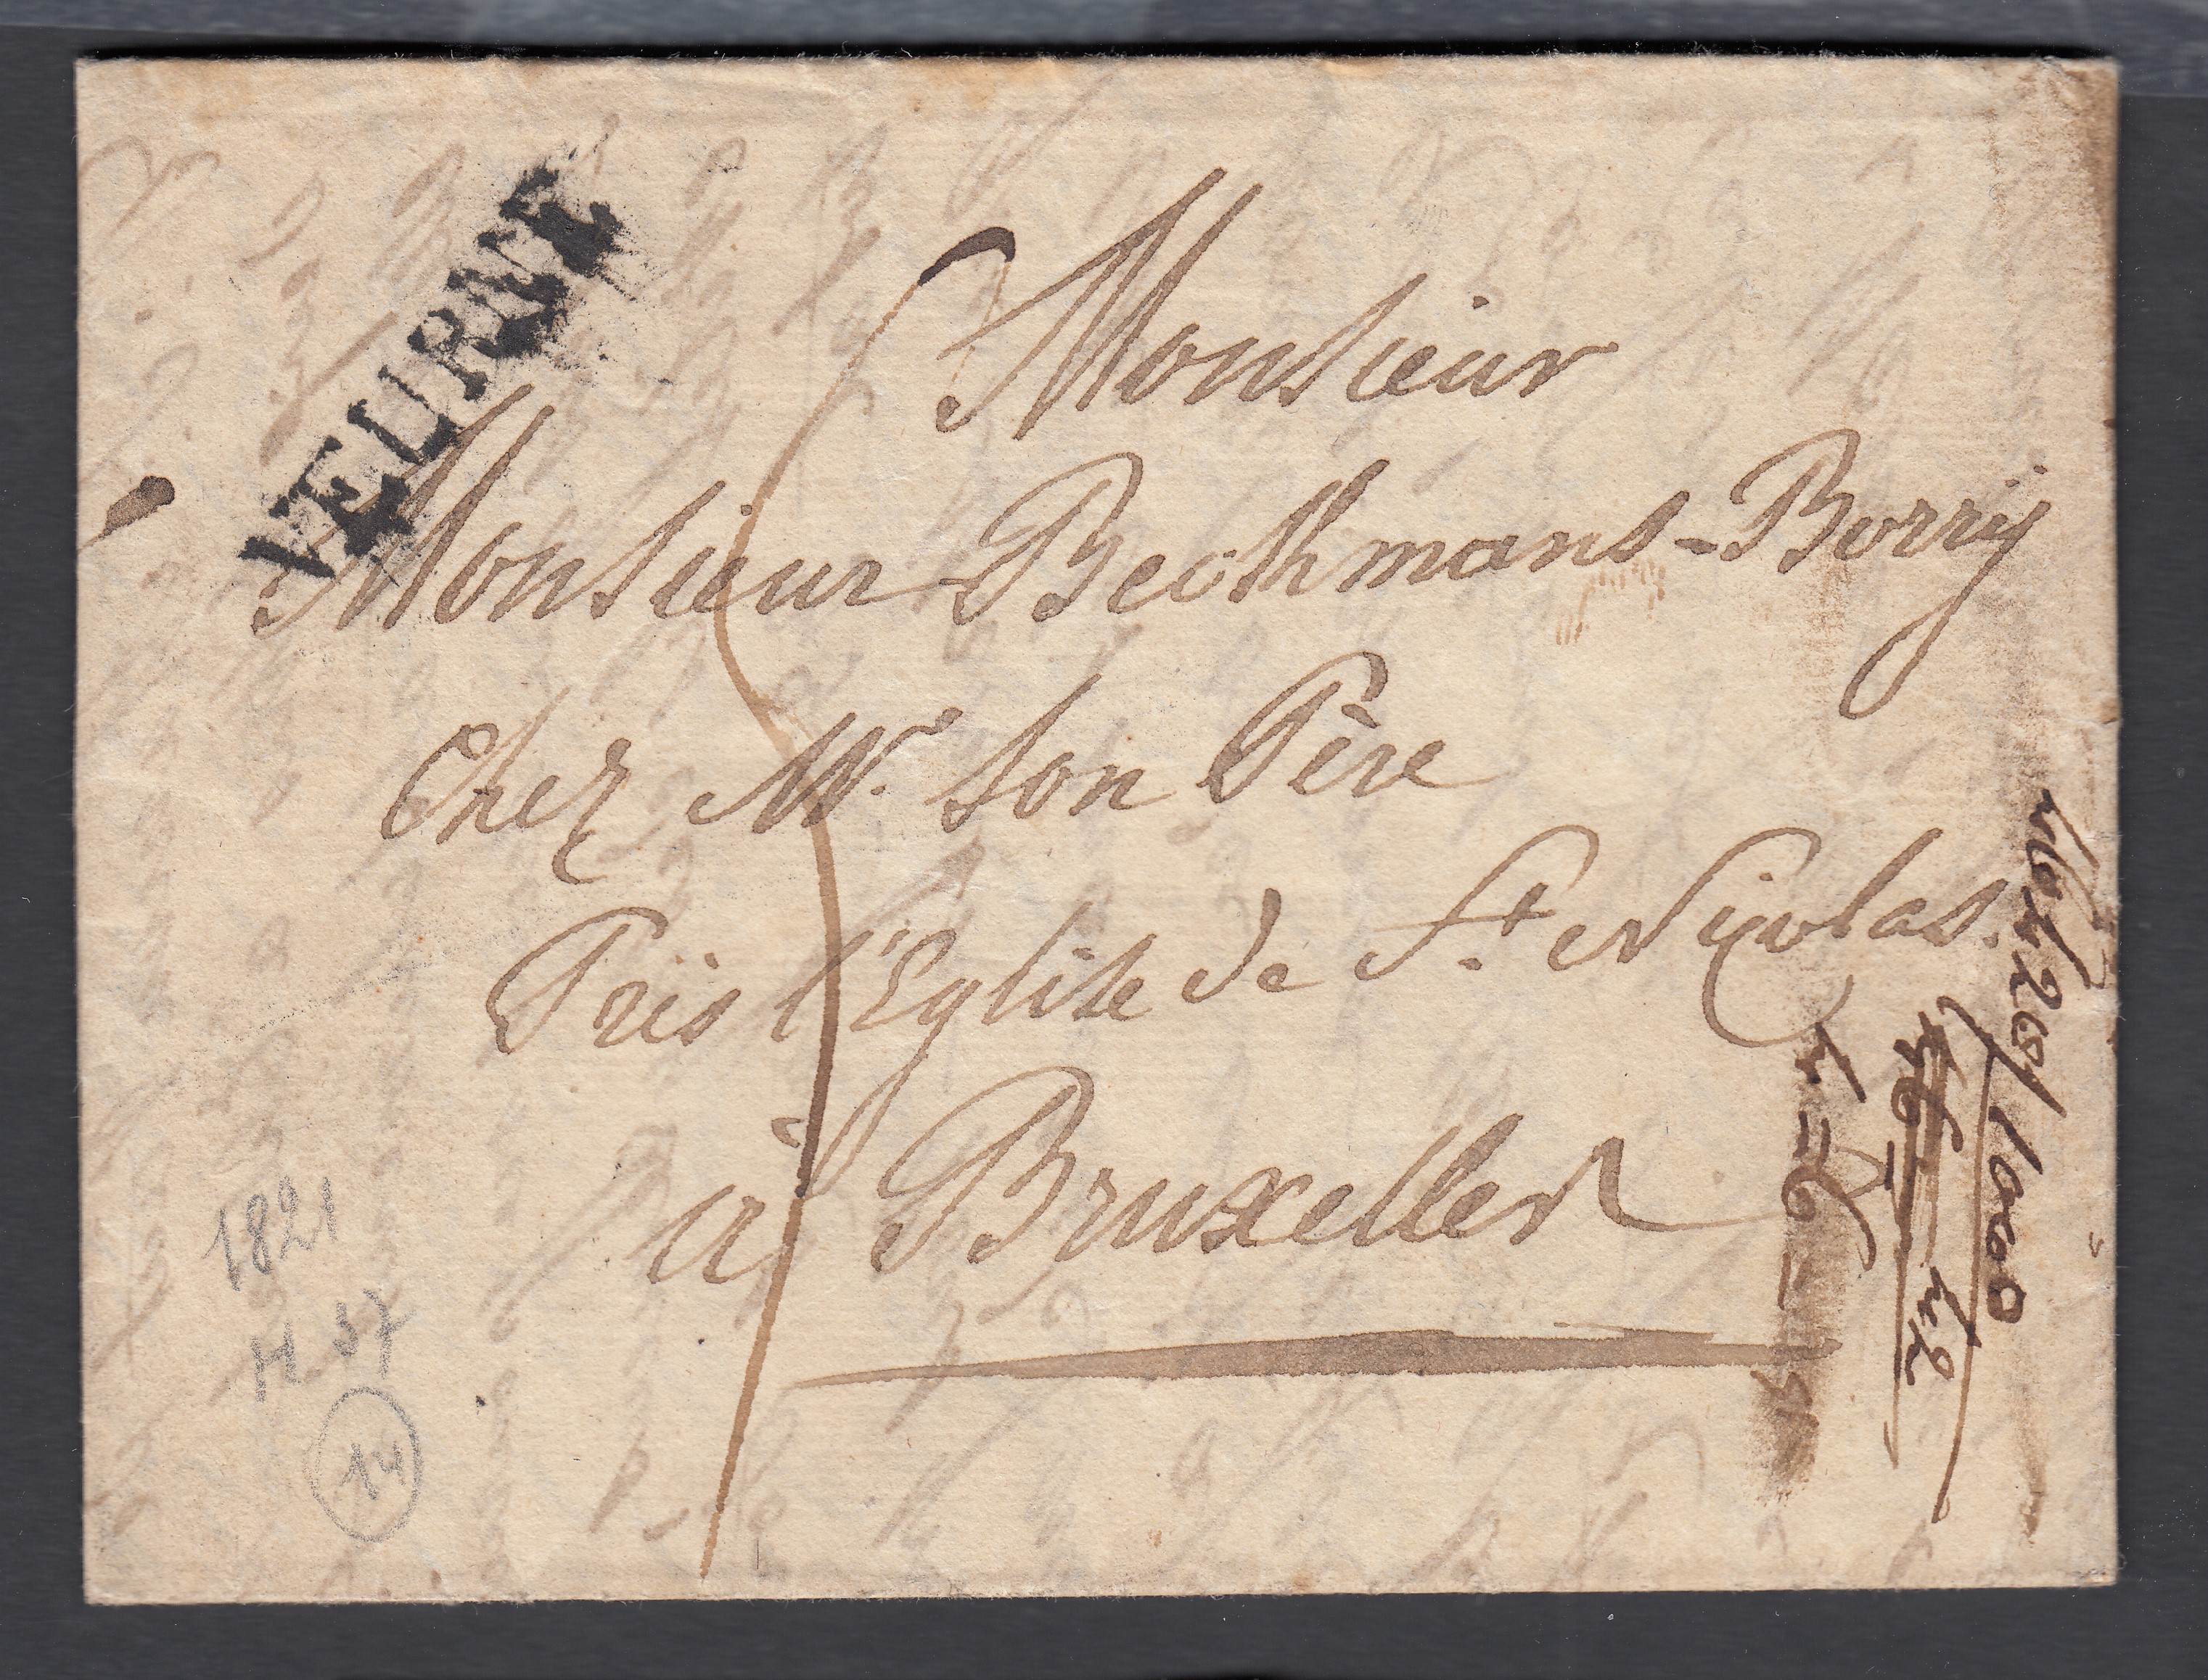 VEURNE
Monsieur
Monsieur Beckmans-Borrij
Chez Mr. Son Père
Près l'Eglise de St. Nicolas.
à Bruxelles
1821
H 37
14